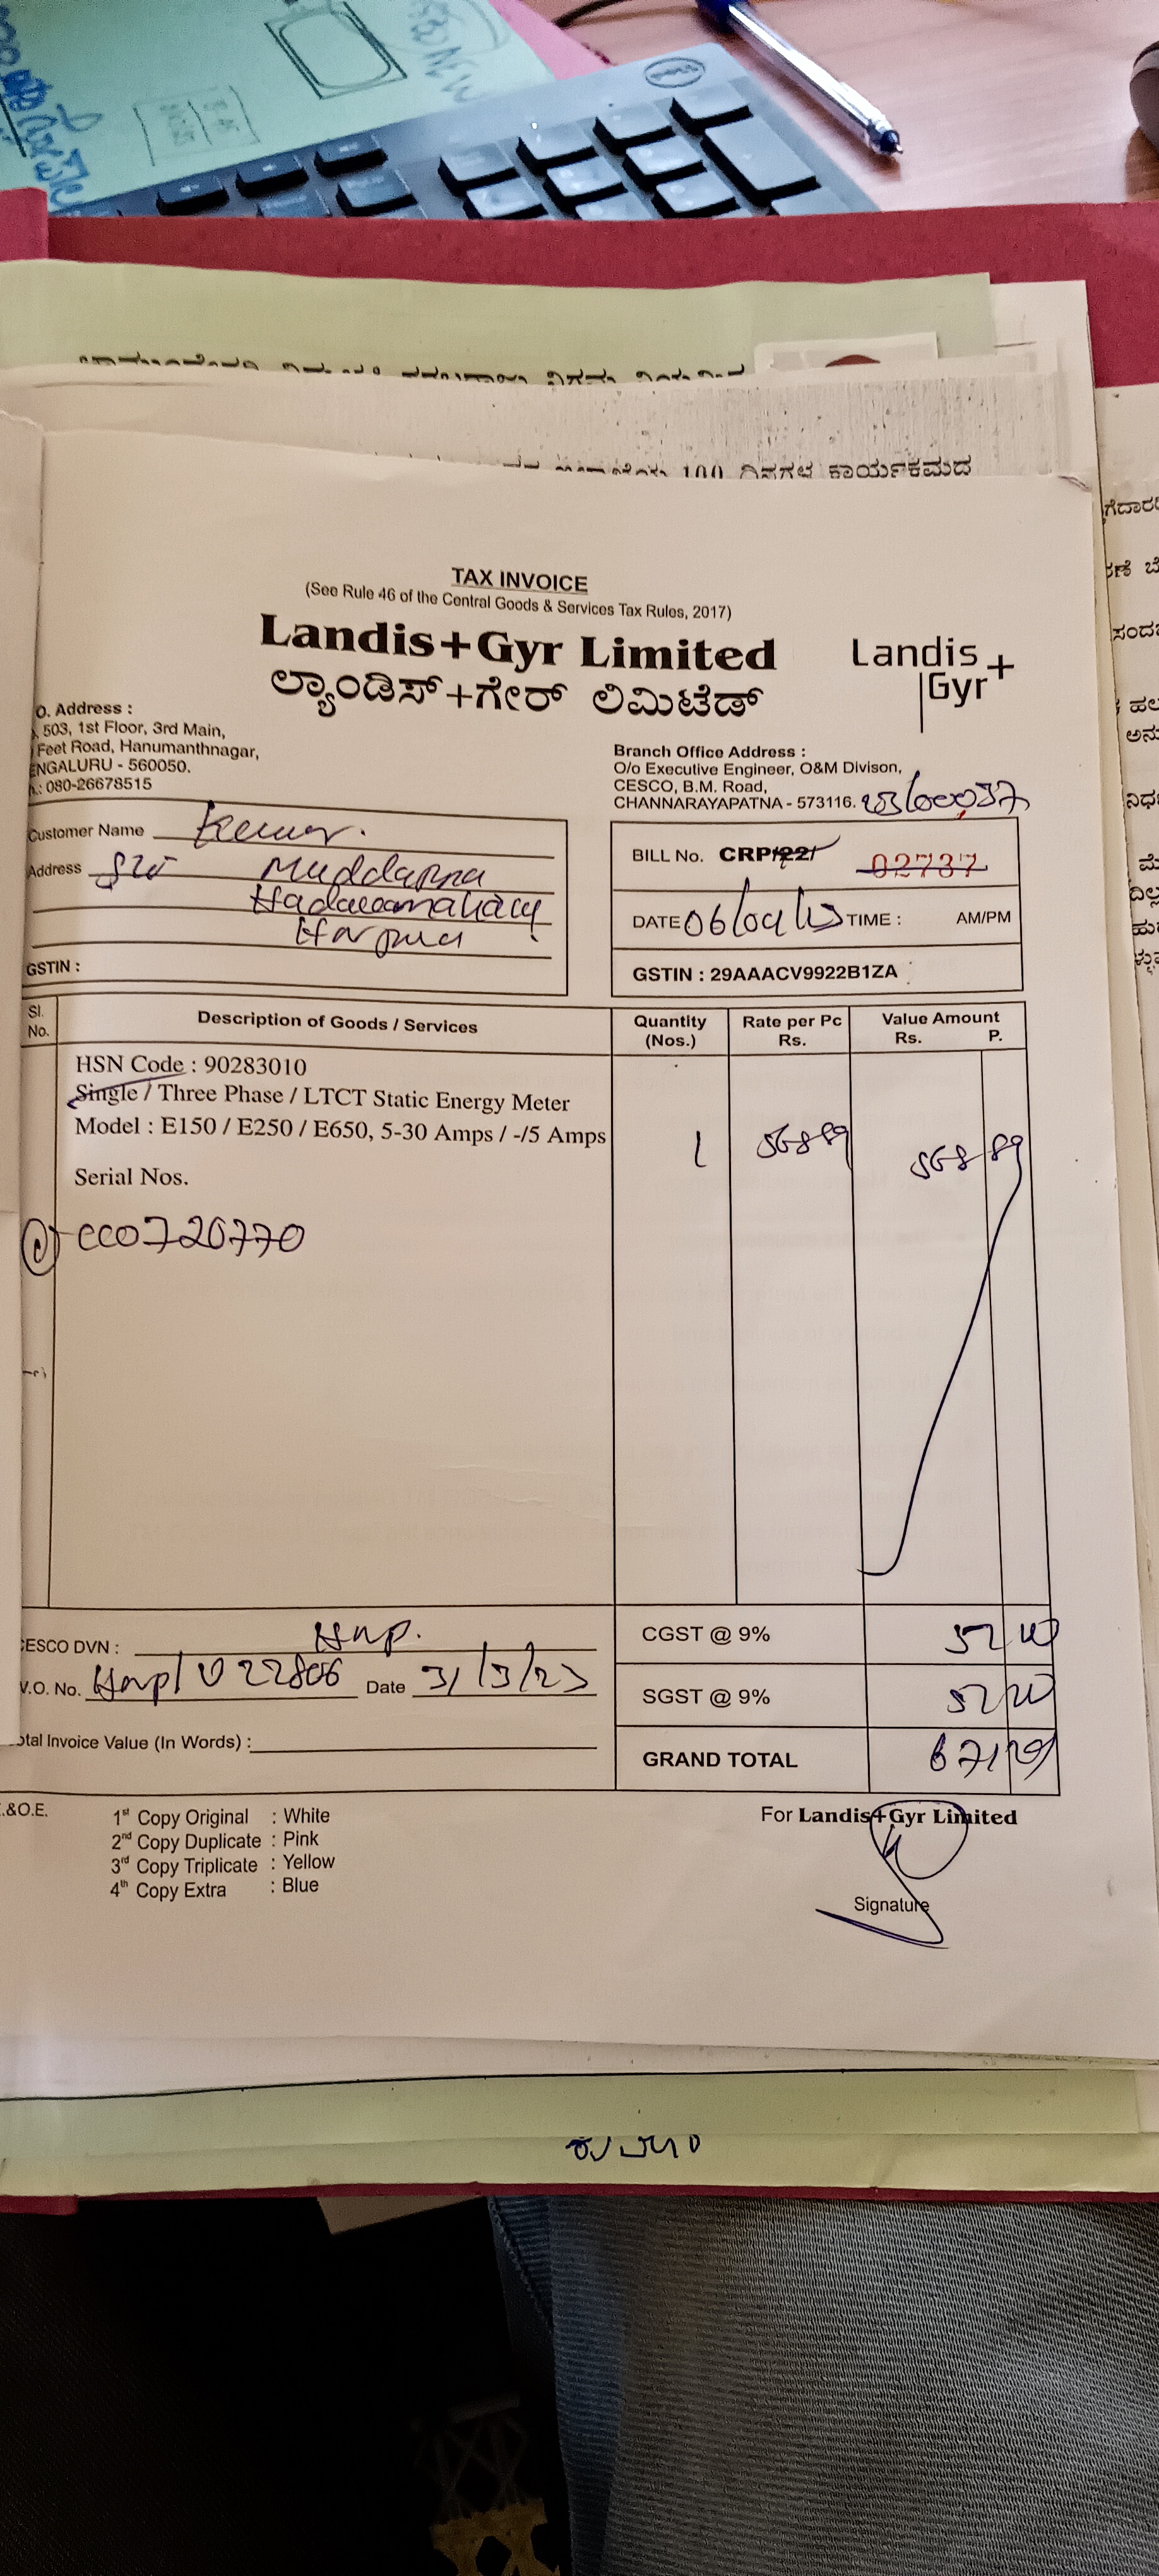 100 ದಿನಗಳ ಕಾರ್ಯಕ್ರಮದ
TAX INVOICE
(See Rule 46 of the Central Goods & Services Tax Rules, 2017)
Landis+Gyr Limited
ಲ್ಯಾಂಡಿಸ್+ಗೇರ್ ಲಿಮಿಟೆಡ್
Landis+
Gyr
O. Address :
503, 1st Floor, 3rd Main,
Feet Road, Hanumanthnagar,
ENGALURU - 560050.
.: 080-26678515
Branch Office Address :
O/o Executive Engineer, O&M Divison,
CESCO, B.M. Road,
CHANNARAYAPATNA - 573116.
Customer Name Kumar.
Address S/o Muddappa
GSTIN :
BILL No. CRP/22/ 02737
DATE 06/04/23 TIME : AM/PM
GSTIN : 29AAACV9922B1ZA
Sl. No.
Description of Goods / Services
Quantity (Nos.)
Rate per Pc Rs.
Value Amount Rs. P.
HSN Code : 90283010
Single / Three Phase / LTCT Static Energy Meter
Model : E150 / E250 / E650, 5-30 Amps / -/5 Amps
1 568 89 568 89
Serial Nos.
CC0720770
CESCO DVN : Hnp.
V.O. No. Hnp/ 022806 Date 31/3/23
otal Invoice Value (In Words) :
CGST @ 9% 52 20
SGST @ 9% 52 20
GRAND TOTAL 671 29
.&O.E.
1st Copy Original : White
2nd Copy Duplicate : Pink
3rd Copy Triplicate : Yellow
4th Copy Extra : Blue
For Landis+Gyr Limited
Signature